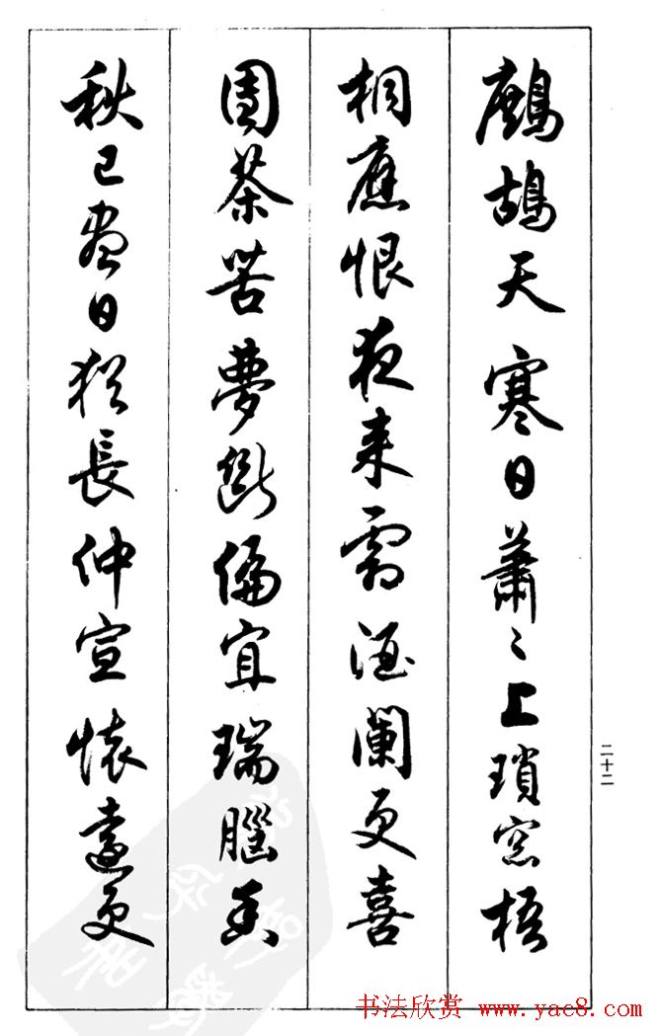 鷓鴣天寒日蕭〻上瑣窓梧
桐應恨夜来霜酒闌更喜
團茶苦夢斷偏宜瑞腦香
秋已盡日猶長仲宣懷遠更
二十二
书法欣赏 www.yac8.com